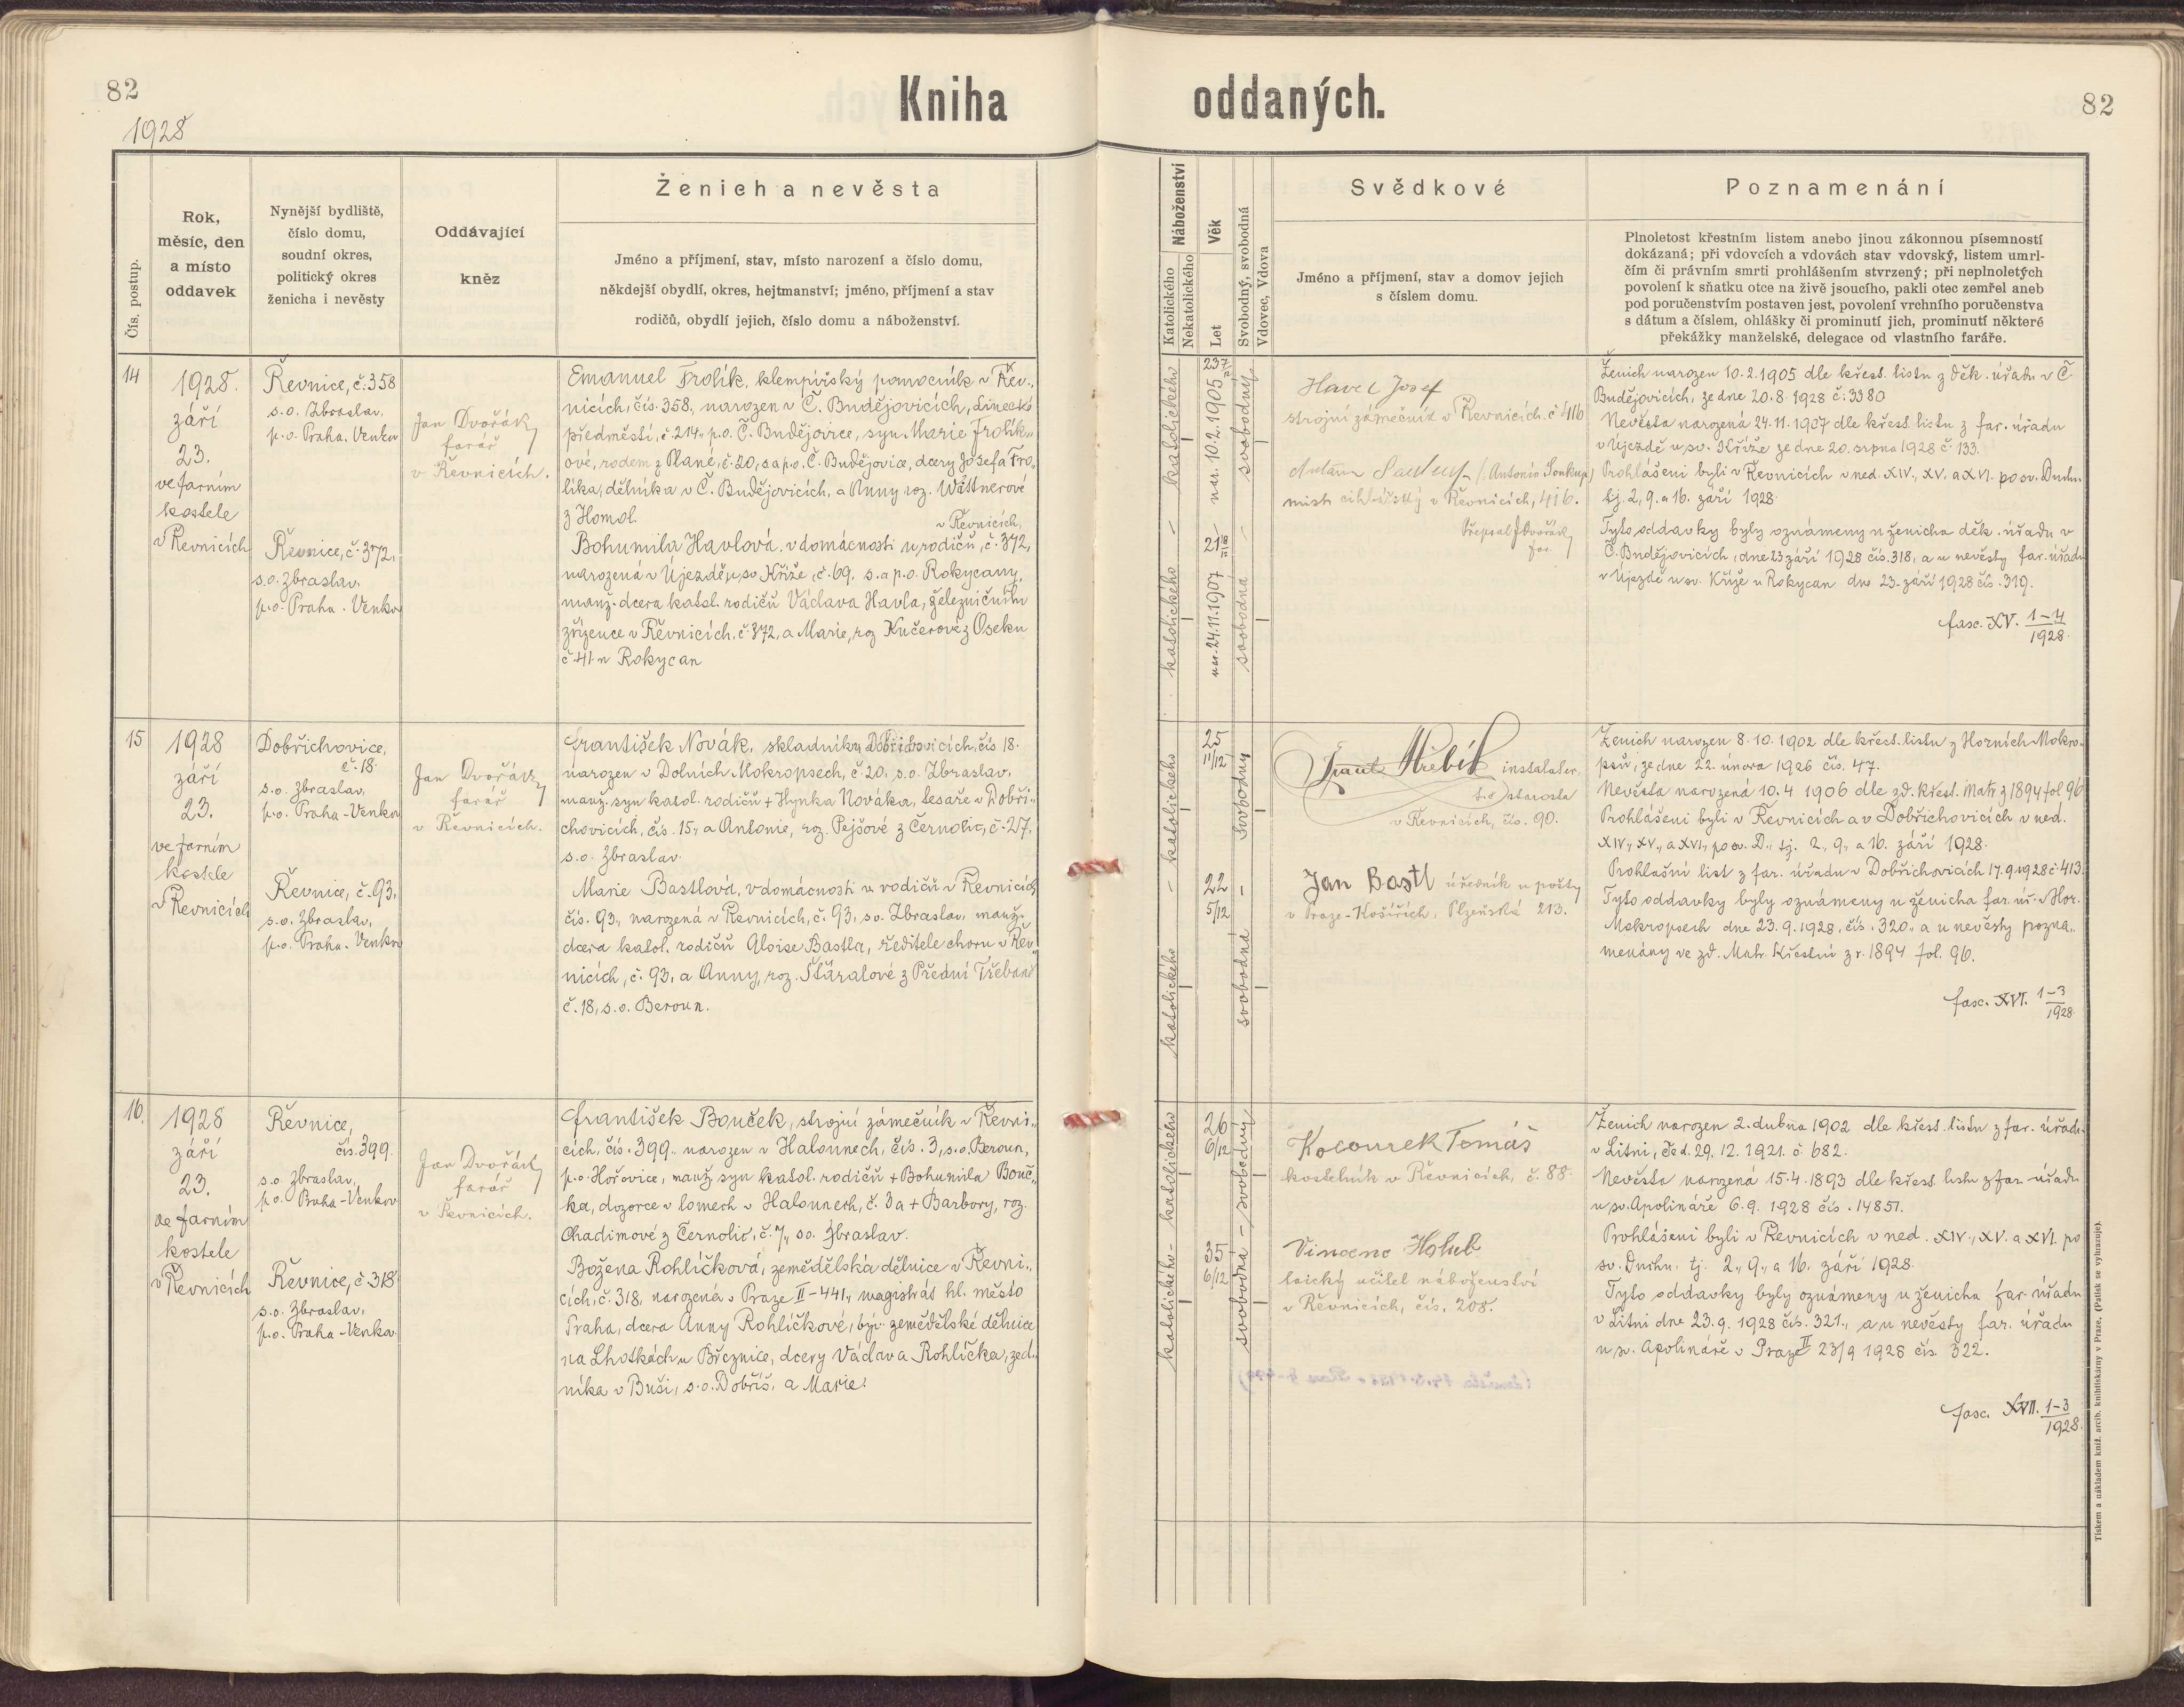 82
1928
Kniha
oddaných.
82
Čís. postup.
Rok,
měsíc, den
a místo
oddavek
Nynější bydliště,
číslo domu,
soudní okres,
politický okres
ženicha i nevěsty
Oddávající
kněz
Ženich a nevěsta
Jméno a příjmení, stav, místo narození a číslo domu,
někdejší obydlí, okres, hejtmanství; jméno, příjmení a stav
rodičů, obydlí jejich, číslo domu a náboženství.
Náboženství
Katolického
Nekatolického
Věk
Let
Svobodný, svobodná
Vdovec, Vdova
Svědkové
Jméno a příjmení, stav a domov jejich
s číslem domu.
Poznamenání
Plnoletost křestním listem anebo jinou zákonnou písemností
dokázaná; při vdovcích a vdovách stav vdovský, listem umrl-
čím či právním smrti prohlášením stvrzený; při neplnoletých
povolení k sňatku otce na živě jsoucího, pakli otec zemřel aneb
pod poručenstvím postaven jest, povolení vrchního poručenstva
s dátum a číslem, ohlášky či prominutí jich, prominutí některé
překážky manželské, delegace od vlastního faráře.
14
1928.
září
23.
ve farním
kostele
v Řevnicích
Řevnice, č. 358
s.o. Zbraslav,
p.o. Praha. Venkov
Řevnice, č. 372,
s.o. Zbraslav.
p.o. Praha. Venkov
Jan Dvořák,
farář
v Řevnicích.
Emanuel Frolík, klempířský pomocník v Řev„
nicích, čís. 358., narozen v Č. Budějovicích, Linecké
předměstí, č 214„ p.o. Č. Budějovice, syn Marie Frolík„
ové, rodem z Plané, č. 20, s a p.o. Č. Budějovice, dcery Josefa Fro„
líka, dělníka v Č. Budějovicích, a Anny roz. Wättnerové
z Homol.
v Řevnicích,
Bohumila Havlová, v domácnosti u rodičů, č. 372,
narozená v Újezdě u sv Kříže, č. 69, s. a p.o. Rokycany,
manž. dcera katol. rodičů Václava Havla, železničního
zřízence v Řevnicích, č. 372, a Marie, roz Kučerové z Oseku
č 41 u Rokycan
katolického - katolického
23 7
nar. 10.2.1905
21
nar. 24.11.1907
svobodný - svobodná
Havel Josef
strojní zámečník v Řevnicích. č 416
(Antonín Soukup)
mistr cihlářský v Řevnicích, 416.
Přepsal J Dvořák,
far.
Ženich narozen 10.2.1905 dle křest. listu z děk. úřadu v Č.
Budějovicích, ze dne 20.8.1928 č. 3380
Nevěsta narozená 24.11.1907 dle křest. listu z far. úřadu
v Újezdě u sv. Kříže ze dne 20. srpna 1928 č. 133.
Prohlášeni byli v Řevnicích v ned. XIV., XV. a XVI. po sv. Duchu.
tj. 2, 9. a 16. září 1928.
Tyto oddavky byly oznámeny u ženicha děk. úřadu v
Č. Budějovicích, dne 23 září 1928 čís. 318, a u nevěsty far. úřadu
v Újezdě u sv. Kříže u Rokycan dne 23. září 1928 čís. 319.
fasc. XV. 1-4
1928.
15
1928
září
23.
ve farním
kostele
v Řevnicích
Dobřichovice,
č. 18.
s.o. Zbraslav,
p.o. Praha-Venkov
Řevnice, č. 93,
s.o. Zbraslav,
p.o. Praha. Venkov
Jan Dvořák,
farář
v Řevnicích.
František Novák, skladník v Dobřichovicích, čís 18.
narozen v Dolních Mokropsech, č. 20, s.o. Zbraslav.
manž. syn katol. rodičů + Hynka Nováka, tesaře v Dobři„
chovicích, čís. 15, a Antonie, roz. Pejšové z Černolic, č. 27.
s.o. Zbraslav.
Marie Bastlová, v domácnosti u rodičů v Řevnicích
čís. 93., narozená v Řevnicích, č. 93, s.o. Zbraslav, manž.
dcera katol. rodičů Aloise Bastla, ředitele choru v Řev„
nicích, č. 93, a Anny, roz. Šťáralové z Přední Třebaně
č. 18, s.o. Beroun.
katolického - katolického
25
11/12
22
5/12
svobodný - svobodná
Frant. Hřebík instalater
t.č. starosta
v Řevnicích, čís. 90.
Jan Bastl úředník u pošty
v Praze-Košířích, Plzeňská 213.
Ženich narozen 8.10.1902 dle křest. listu z Horních Mokro-
psů, ze dne 22. února 1926 čís. 47.
Nevěsta narozená 10.4 1906 dle zd. křest. matr. z 1894 fol 96
Prohlášeni byli v Řevnicích a v Dobřichovicích v ned.
XIV., XV., a XVI., po sv. D., tj. 2., 9., a 16. září 1928.
Prohlašní list z far. úřadu v Dobřichovicích 17.9.1928 č. 413.
Tyto oddavky byly oznámeny u ženicha far. úř. v Hor.
Mokropsech dne 23.9.1928, čís. 320., a u nevěsty pozna„
menány ve zd. Matr. křestní z r. 1894 fol. 96.
fasc. XVI. 1-3
1928.
16.
1928
září
23.
ve farním
kostele
v Řevnicích
Řevnice,
čís. 399.
s.o. Zbraslav,
p.o. Praha-Venkov
Řevnice, č. 318
s.o. Zbraslav,
p.o. Praha-Venkov.
Jan Dvořák,
farář
v Řevnicích.
František Bouček, strojní zámečník v Řevni„
cích, čís. 399., narozen v Halounech, čís. 3, s.o. Beroun,
p.o. Hořovice, manž. syn katol. rodičů + Bohumila Bouč„
ka, dozorce v lomech v Halounech, č. 3 a + Barbory, roz.
Chadimové z Černolic, č. 7, s.o. Zbraslav.
Božena Rohlíčková, zemědělská dělnice v Řevni„
cích, č. 318, narozená v Praze II-441, magistrát hl. město
Praha, dcera Anny Rohlíčkové, býv. zemědělské dělnice
na Lhotkách u Březnice, dcery Václava Rohlíčka, zed„
níka v Buši, s.o. Dobříš, a Marie.
katolického - katolického
26
6/12
35
6/12
svobodná - svobodný
Kocourek Tomáš
kostelník v Řevnicích, č. 88.
Vincenc Holub
laický učitel náboženství
v Řevnicích, čís. 208.
Ženich narozen 2. dubna 1902 dle křest. listu z far. úřadu
v Litni, že d. 29.12.1921. č. 682.
Nevěsta narozená 15.4.1893 dle křest. listu z far. úřadu
u sv. Apolináře 6.9.1928 čís. 14851.
Prohlášeni byli v Řevnicích v ned. XIV., XV. a XVI. po
sv. Duchu, tj. 2., 9., a 16. září 1928.
Tyto oddavky byly oznámeny u ženicha far. úřadu
v Litni dne 23.9.1928 čís. 321., a u nevěsty far. úřadu
u sv. Apolináře v Praze II 23/9 1928 čís. 322.
fasc. XVII. 1-3
1928.
Tiskem a nákladem kníž. arcib. knihtiskárny v Praze. (Patisk se vyhrazuje).